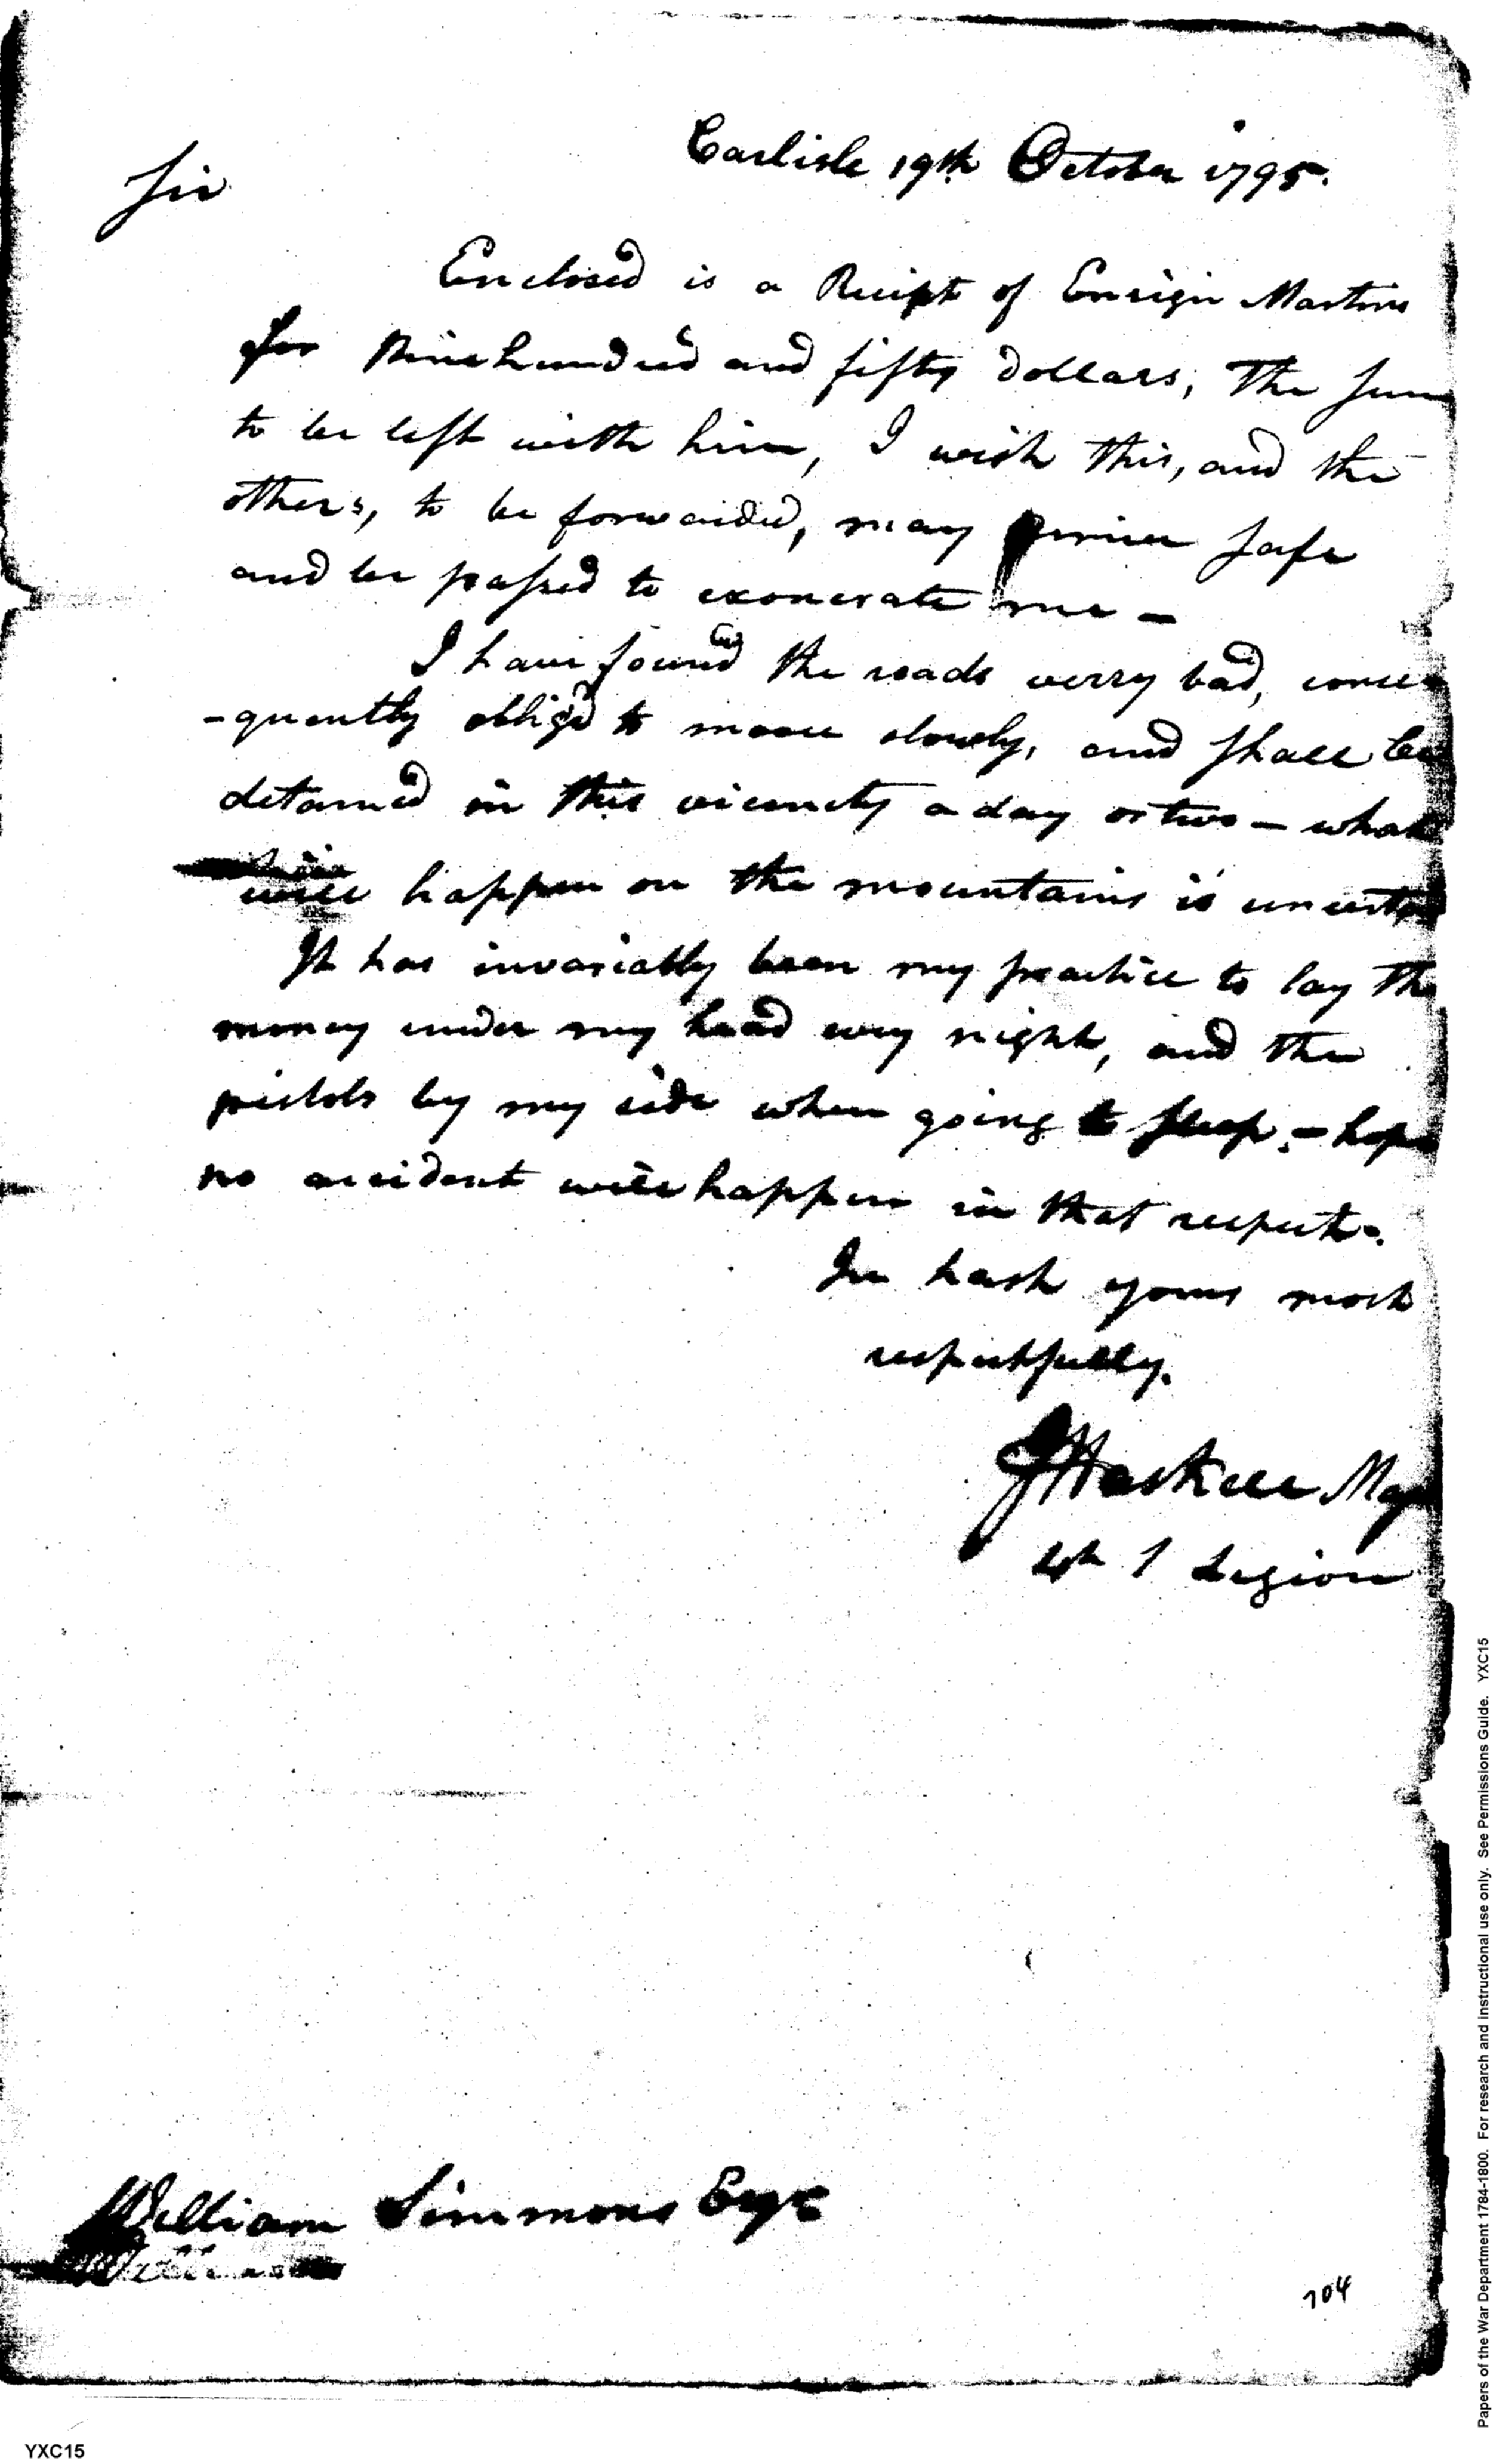 Carlisle 19th October 1795.
Sir
Enclosed is a Reciept of Ensign Martins
for Nine hundred and fifty dollars, The sum
to be left with him, I wish this, and the
others, to be forwarded, may arrive safe
and be passed to exonerate me —
I have found the roads verry bad, conse
-quently obliged to move slowly, and shall be
detained in this vicinity a day or two — what
will happen on the mountains is uncert
It has invariably been my practice to lay the
money under my head evry night, and the
pistols by my side when going to sleep, — hope
no accident will happen in that respect.
In hast yours most
respectfully.
J Haskell Maj
4th S Legion
William Simmons Esqr
704
Papers of the War Department 1784-1800. For research and instructional use only. See Permissions Guide. YXC15
YXC15